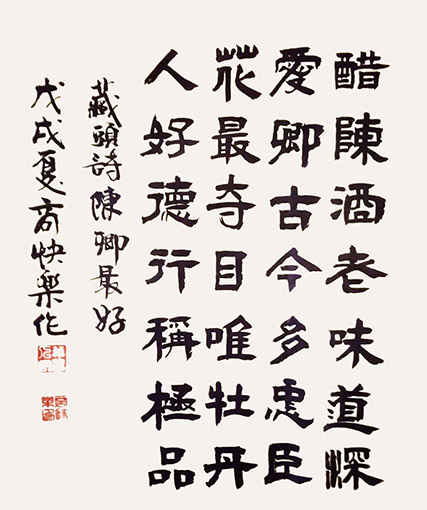 醋陳酒老味道深
愛卿古今多忠臣
花最夺目唯牡丹
人好德行稱極品
藏頭詩陳卿最好
戊戌夏商快樂作